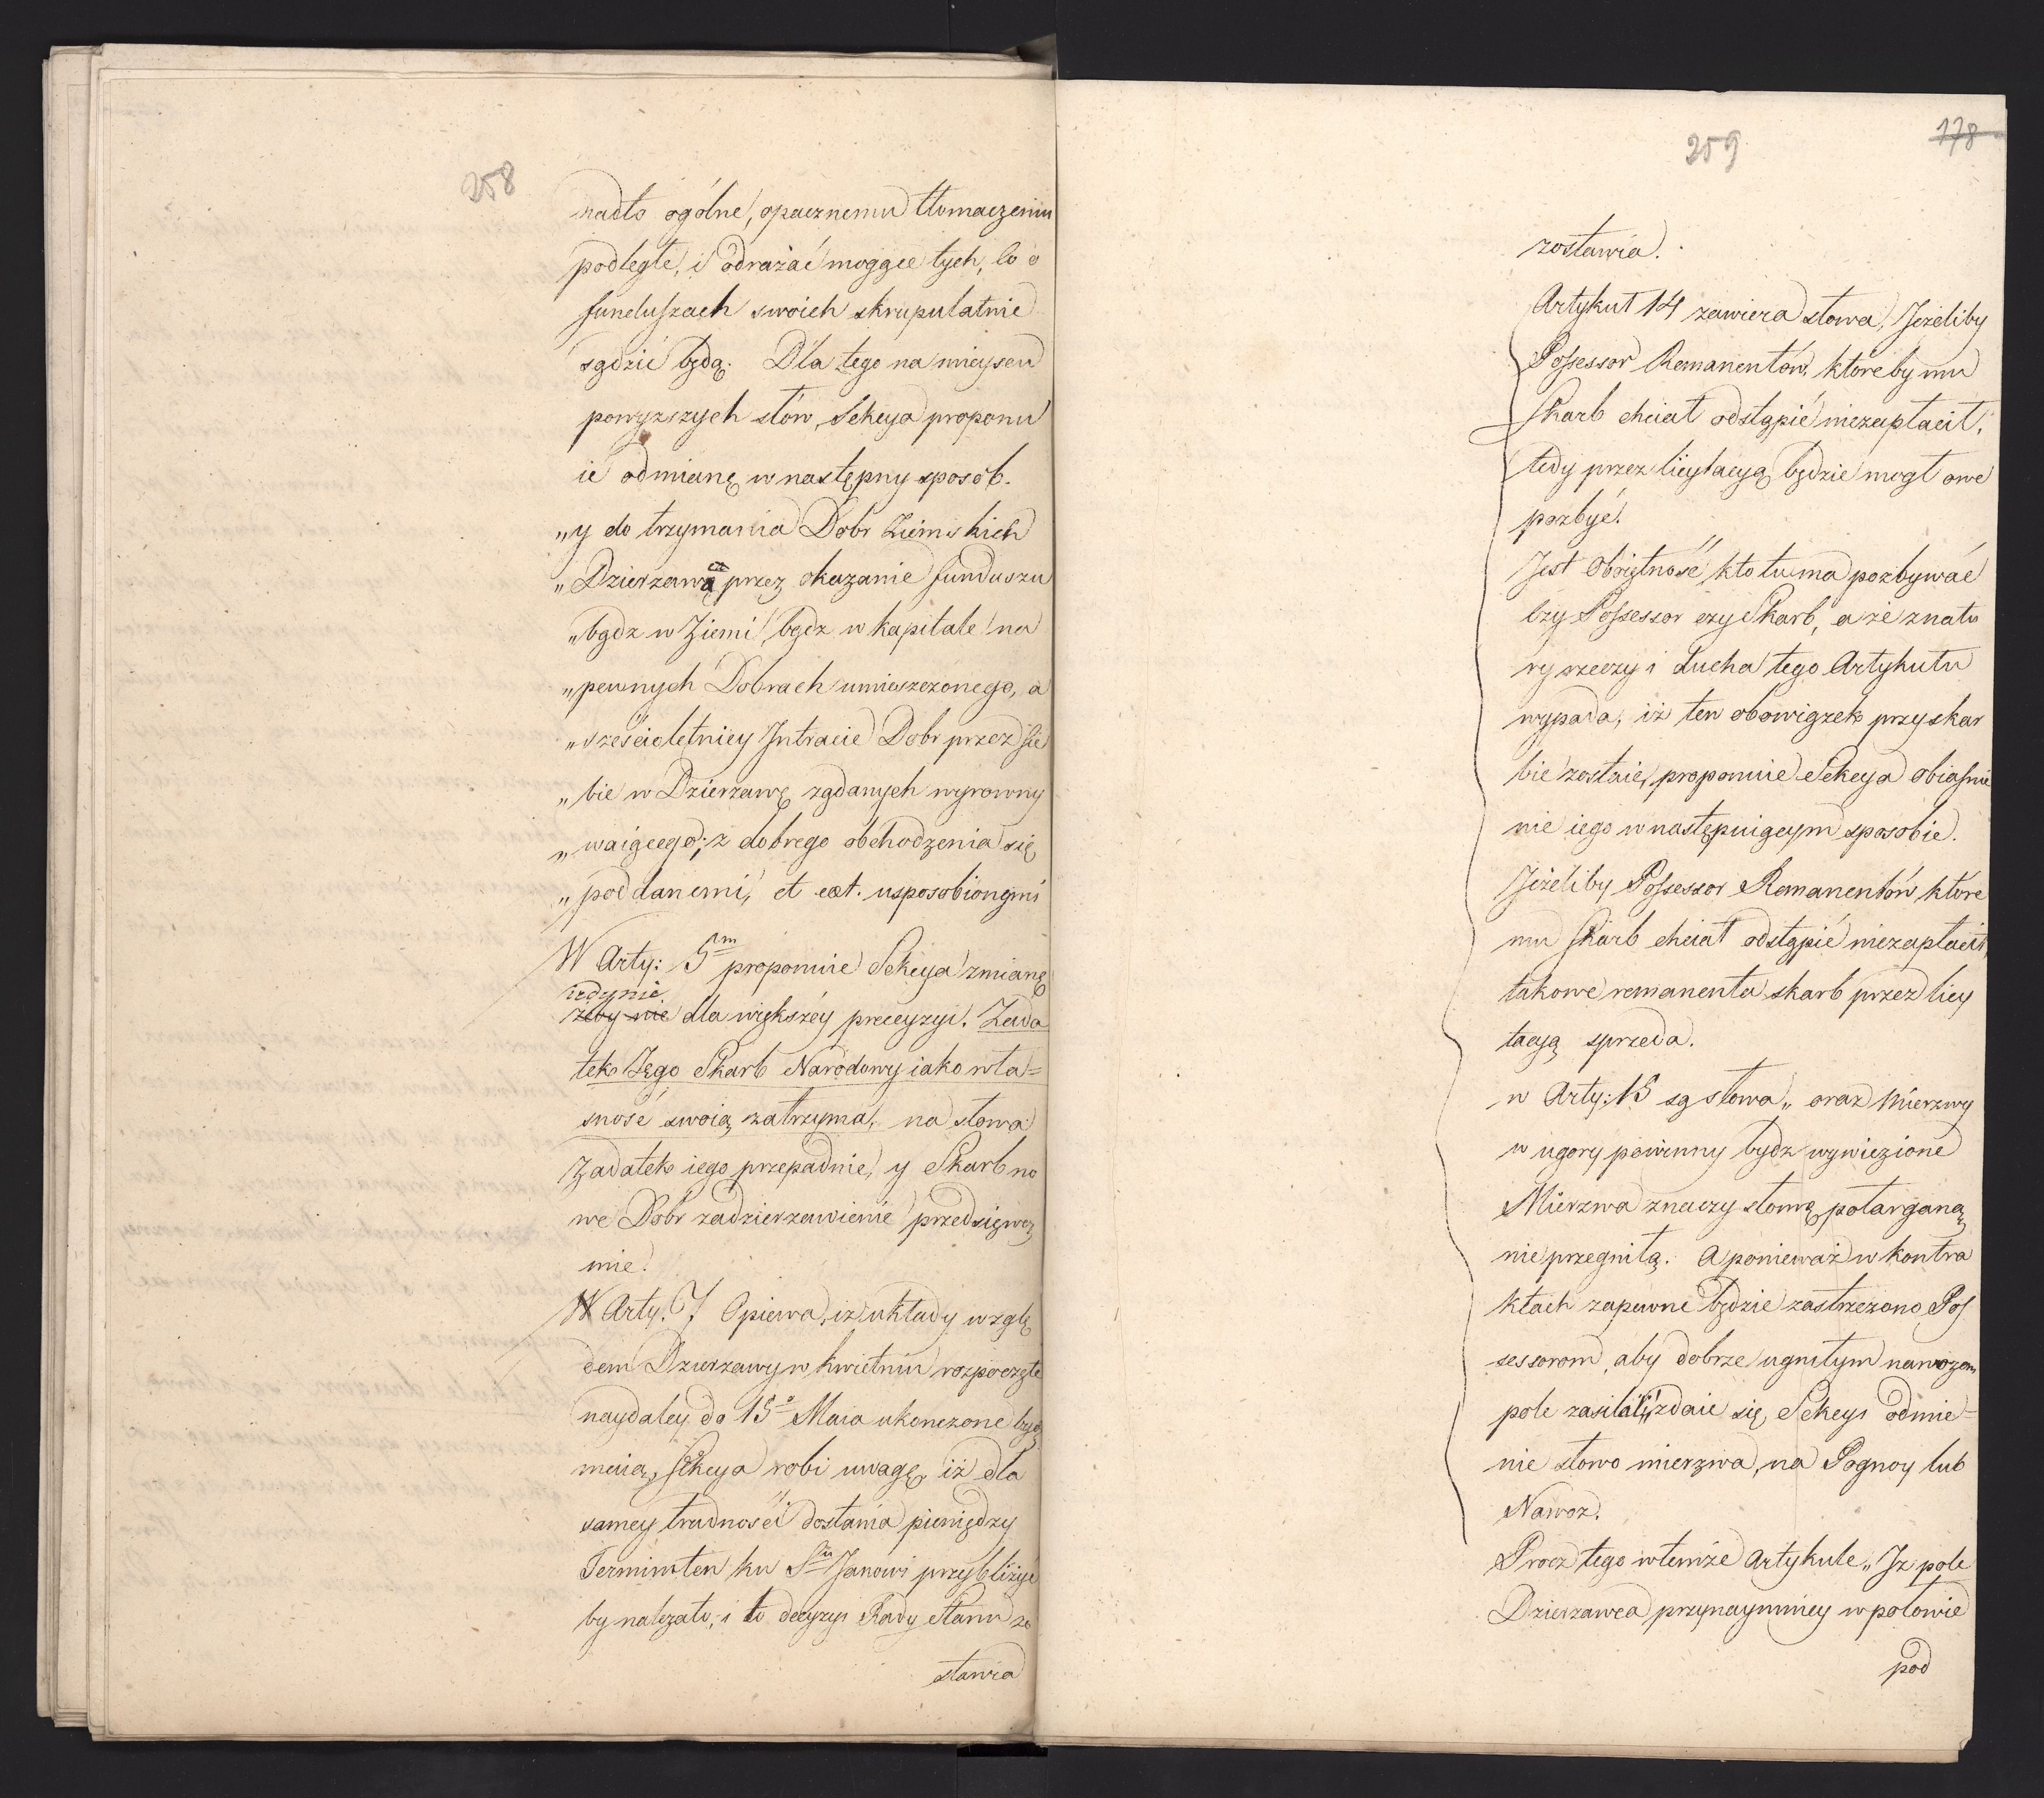 258
nadto ogólne, opacznemu tłomaczeniu
podległe, i odrażać mogące tych, co o
funduszach swoich skrupulatnie
sądzić będą. Dla tego na mieyscu
powyższych słów, Sekcya proponu
ie odmianę w następny sposób.
„y do trzymania Dobr Ziemskich
„Dzierzawą przez okazanie funduszu
„bądz w Ziemi bądz w kapitale na
„pewnych Dobrach umieszczonego, a
„sześcioletniey Intracie Dobr przez sie
„bie w Dzierzawę żądanych wyrowny
„waiącego; z dobrego obchodzenia się
„poddanemi, et cæt. usposobionymi
W Arty: 5m proponuie Sekcya zmianę
iedynie
żeby nie dla większéy precyzyi. Zada
tek Jego Skarb Narodowy iako wła=
sność swoią zatrzyma, na słowa
Zadatek iego przepadnie, y Skarb no
we Dobr zadzierzawienie przedsięwez
mie.
W Arty. 7 Opiewa, iż układy wzglę
dem Dzierzawy w kwietniu rozpoczęte
naydaley do 15o Maia ukończone bydź
maią, Sekcya robi uwagę, iż dla
samey trudności dostania pieniędzy
Termin ten ku Su Janowi przybliżyć
by należało, i to decyzyi Rady Stanu zo
stawia
259
178
zostawia.
Artykuł 14 zawiera słowa, Jeżeliby
Possessor Remanentów, któreby mu
Skarb chciał odstąpić niezapłacił,
tedy przez licytacyą będzie mógł owe
pozbyć.
Jest Obojętność kto tu ma pozbywać
Czy Possessor czy Skarb, a że z natu
ry rzeczy i ducha tego Artykułu
wypada, iż ten obowiązek przy skar
bie zostaie, proponuie Sekcya obiaśnie
nie iego w następuiącym sposobie.
Jeżeliby Possessor Remanentów które
mu Skarb chciał odstąpić niezapłacił,
takowe remanenta skarb przez licy
tacyą sprzeda.
w Arty: 15 są słowa „ oraz Mierzwy
w ugory powinny bydz wywiezione
Mierzwa znaczy słomę potarganą
nie przegniłą. A ponieważ w kontra
ktach zapewne będzie zastrzeżono Pos
sessorom, aby dobrze ugniłym nawozem
pole zasilali, zdaie się Sekcyi odmie=
nie słowo mierzwa, na Pognoy lub
Nawoz.
Procz tego w temże Artykule „Iż pole
Dzierzawca przynaymniey w połowie
pod